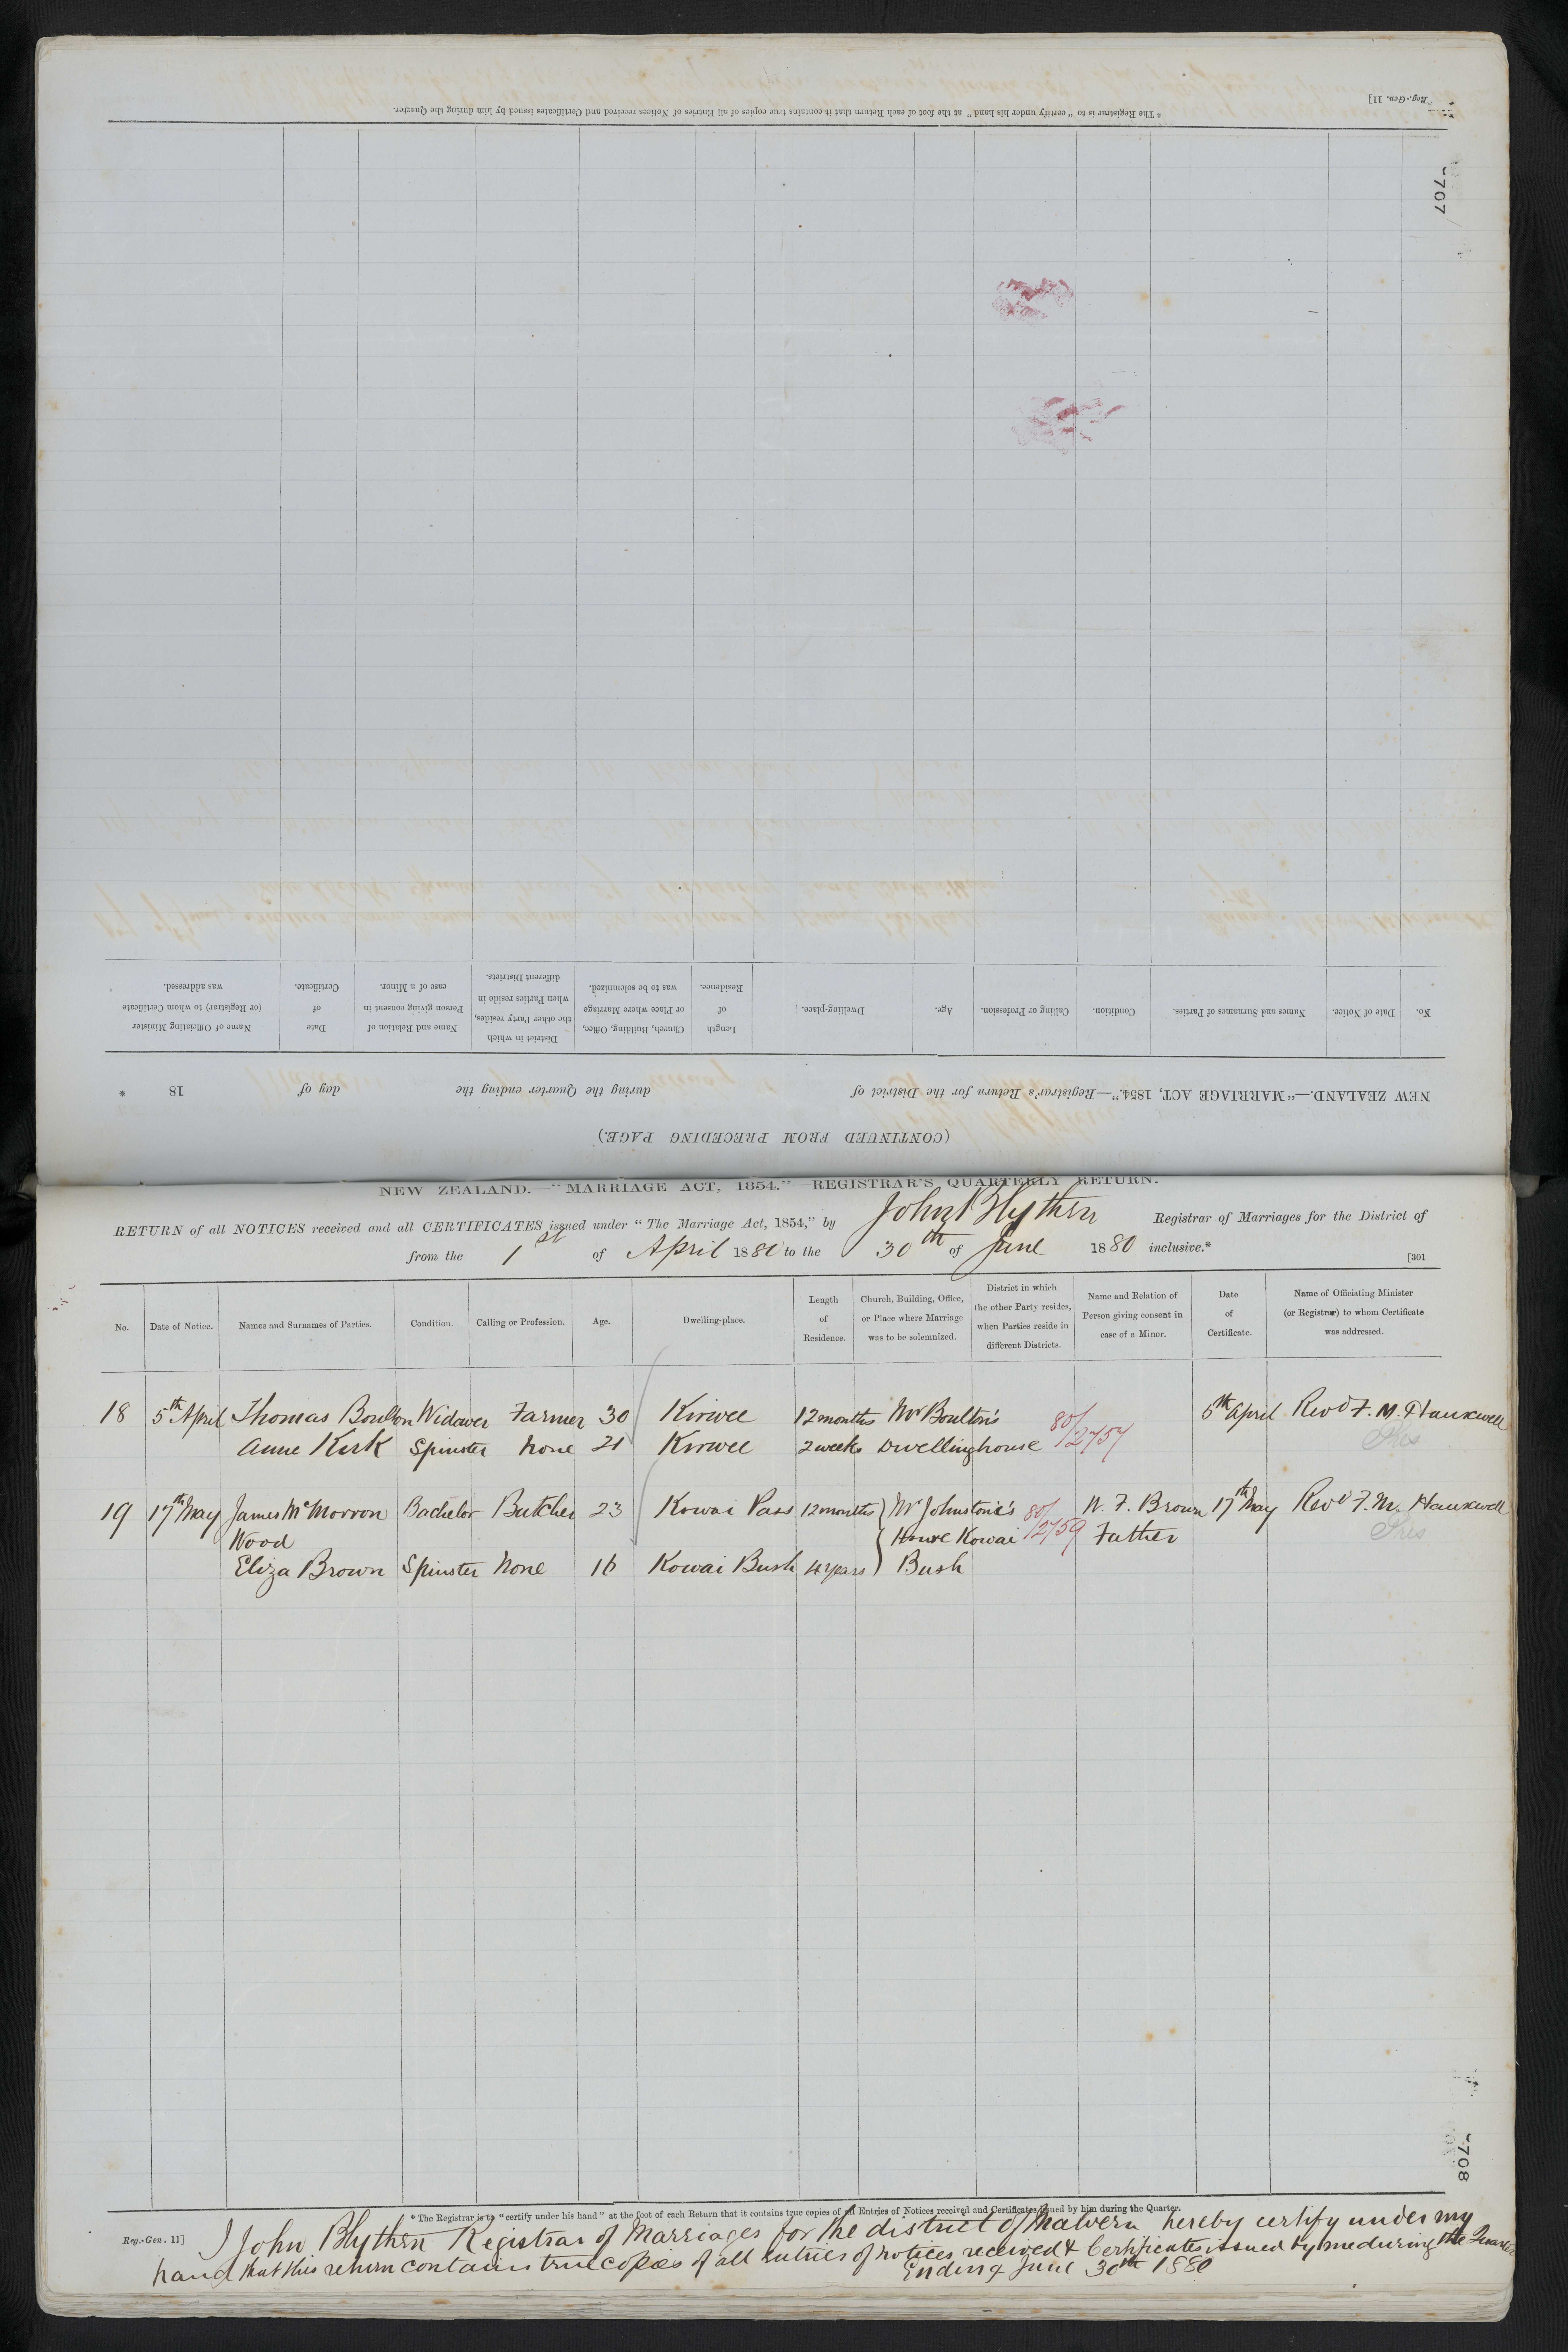 *The Registrar is to "certify under his hand" at the foot of each Return that it contains true copies of all Entries of Notices received and Certificates issued by him during the Quarter.
Reg.-Gen. 11]
707
No. Date of Notice. Names and Surnames of Parties. Condition. Calling or Profession. Age. Dwelling-place. Length of Residence. Church, Building, Office, or Place where Marriage was to be solemnized. District in which the other Party resides, when Parties reside in different Districts. Name and Relation of Person giving consent in case of a Minor. Date of Certificate. Name of Officiating Minister (or Registrar) to whom Certificate was addressed.
NEW ZEALAND.—"MARRIAGE ACT, 1854."—Registrar's Return for the District of during the Quarter ending the day of 18
(CONTINUED FROM PRECEDING PAGE.)
NEW ZEALAND.—"MARRIAGE ACT, 1854."—REGISTRAR'S QUARTERLY RETURN.
RETURN of all NOTICES received and all CERTIFICATES issued under "The Marriage Act, 1854," by John Blythen Registrar of Marriages for the District of
from the 1st of April 1880 to the 30th of June 1880 inclusive.*
[301
No. Date of Notice. Names and Surnames of Parties. Condition. Calling or Profession. Age. Dwelling-place. Length of Residence. Church, Building, Office, or Place where Marriage was to be solemnized. District in which the other Party resides, when Parties reside in different Districts. Name and Relation of Person giving consent in case of a Minor. Date of Certificate. Name of Officiating Minister (or Registrar) to whom Certificate was addressed.
18 5th April Thomas Boulton Widower Farmer 30 Kirwee 12 months Mr Boulton's 80/ 5th April Revd F. M. Hauxwell
Anne Kirk Spinster None 21 Kirwee 2 weeks Dwellinghouse 2757 Pres
19 17th May James McMorron Bachelor Butcher 23 Kowai Pass 12 months Mr Johnstone's 80/ W. F. Brown 17th May Revd F. M. Hauxwell
Wood House Kowai 2759 Father Pres
Eliza Brown Spinster None 16 Kowai Bush 4 years Bush
708
*The Registrar is to "certify under his hand" at the foot of each Return that it contains true copies of all Entries of Notices received and Certificates issued by him during the Quarter.
Reg.-Gen. 11]
I John Blythen Registrar of Marriages for the district of Malvern hereby certify under my
hand that this return contains true copies of all entries of notices received & Certificates issued by me during the Quarter
Ending June 30th 1880